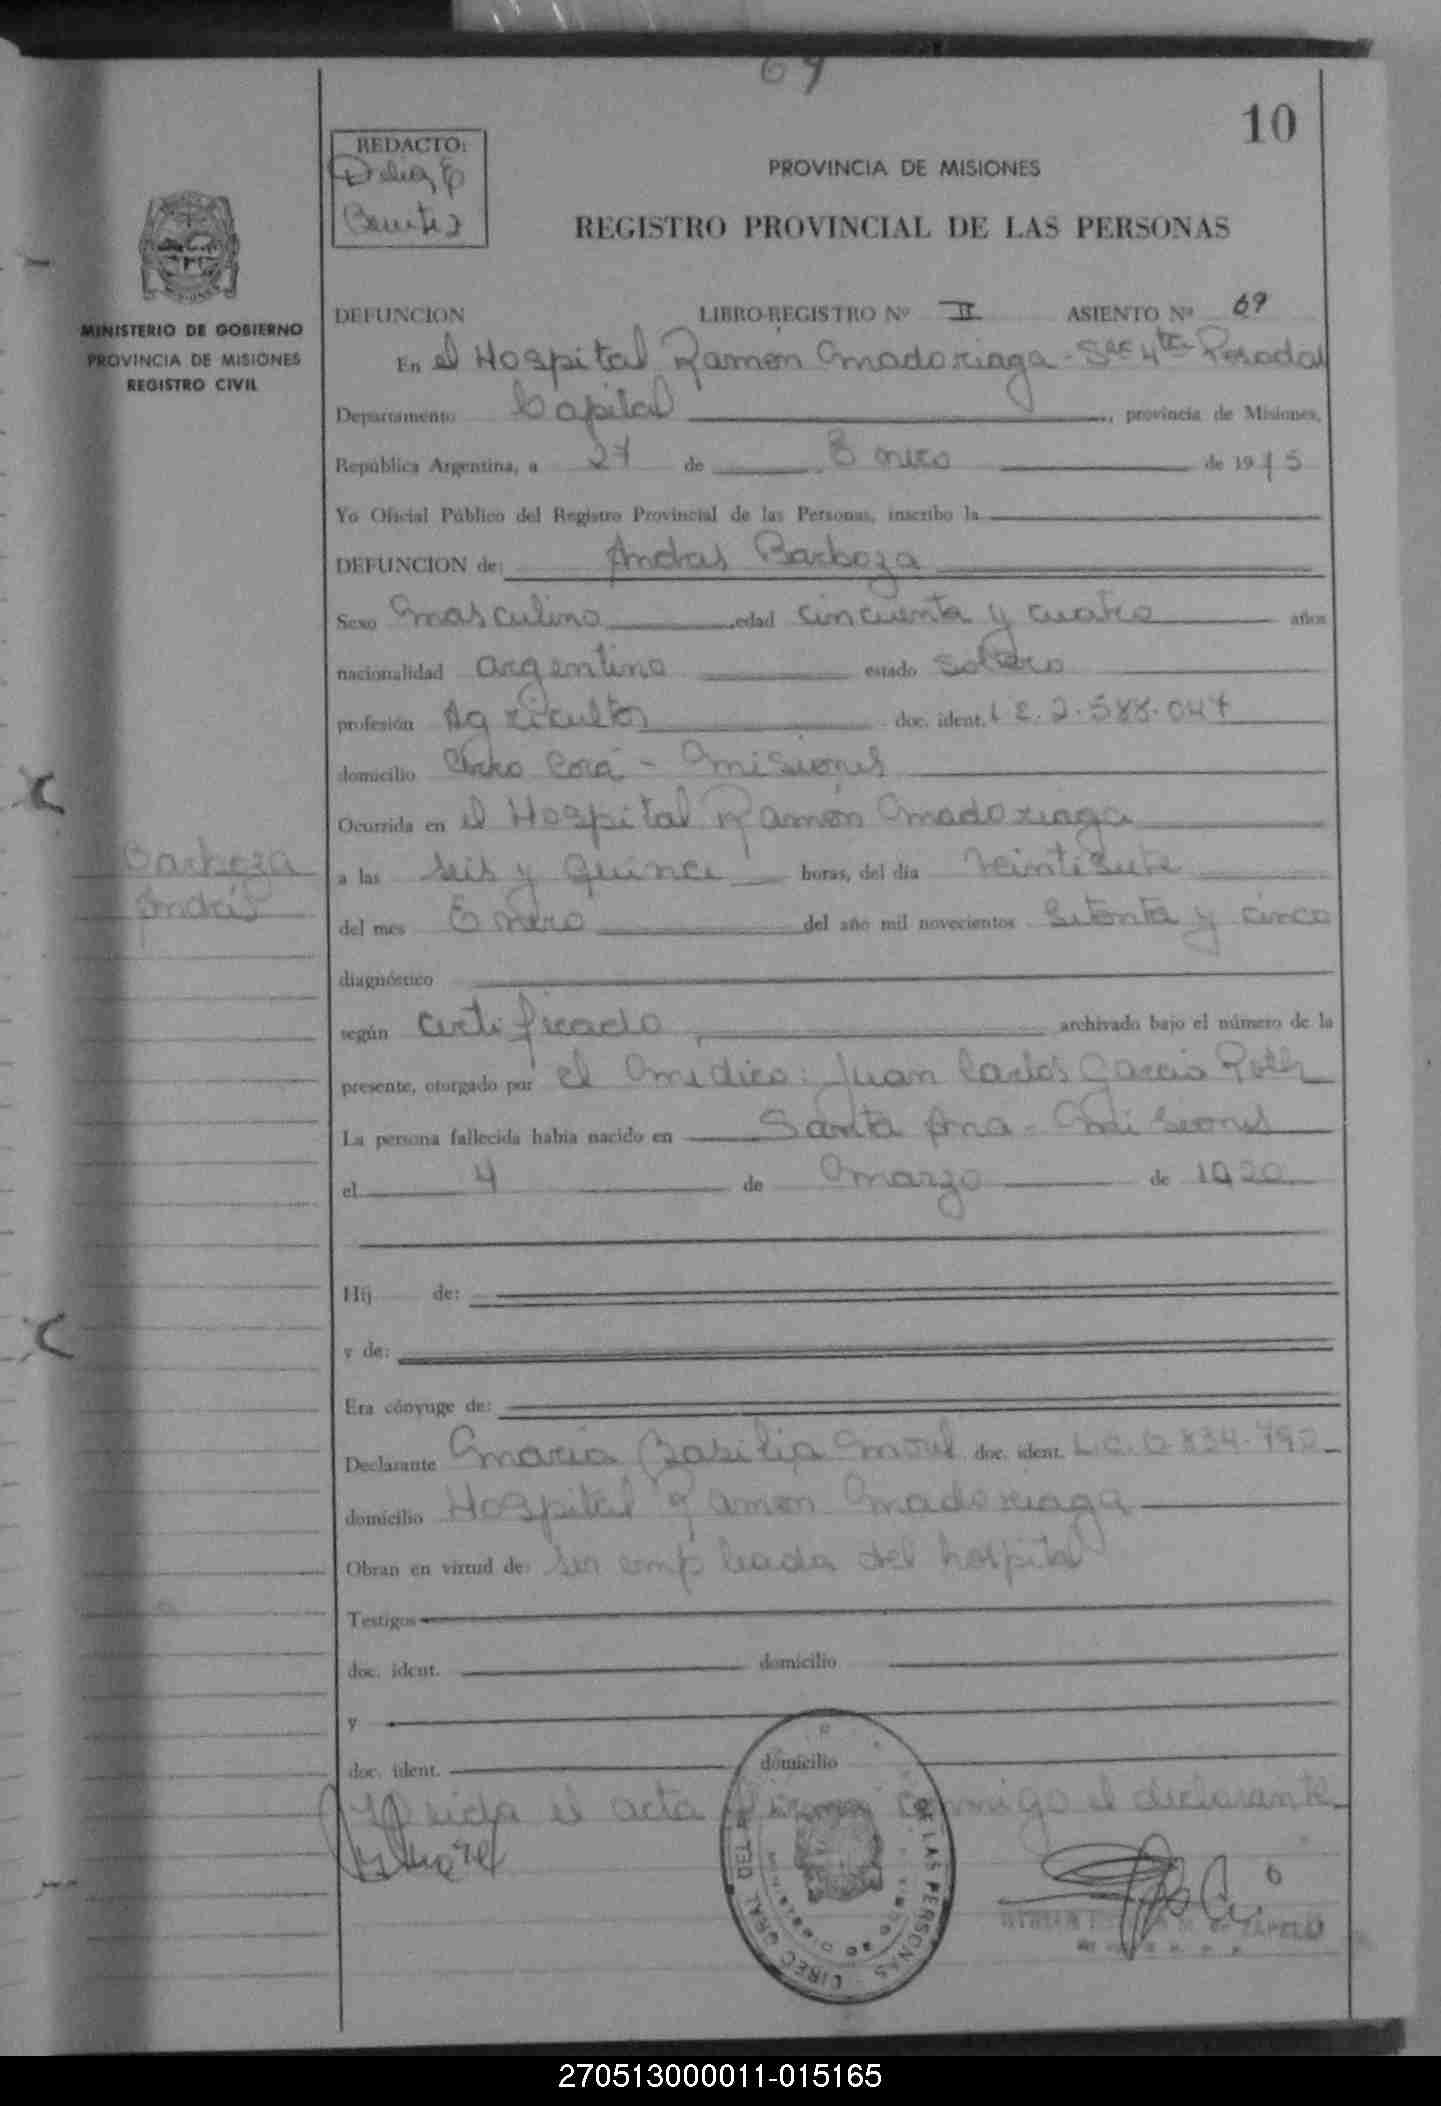 69
10
REDACTO:
Delia E
Benitez
PROVINCIA DE MISIONES
REGISTRO PROVINCIAL DE LAS PERSONAS
MINISTERIO DE GOBIERNO
PROVINCIA DE MISIONES
REGISTRO CIVIL
DEFUNCION LIBRO-REGISTRO Nº II ASIENTO Nº 69
En el Hospital Ramón Madariaga - Sec 4ta Posadas
Departamento Capital, provincia de Misiones,
República Argentina, a 27 de Enero de 1975
Yo Oficial Público del Registro Provincial de las Personas, inscribo la
DEFUNCION de: Andrés Barboza
Sexo Masculino edad cincuenta y cuatro años
nacionalidad argentino estado soltero
profesión Agricultor doc. ident. L.E. 2.588.047
domicilio Cerro Corá - Misiones
Ocurrida en el Hospital Ramón Madariaga
a las seis y quince horas, del día veintisiete
del mes Enero del año mil novecientos setenta y cinco
Barboza
Andrés
diagnóstico
según certificado archivado bajo el número de la
presente, otorgado por el Médico: Juan Carlos García
La persona fallecida había nacido en Santa Ana - Misiones
el 4 de Marzo de 1920
Hij de:
y de:
Era cónyuge de:
Declarante María Basilia Morel doc. ident. L.C. 834.790
domicilio Hospital Ramón Madariaga
Obran en virtud de: ser empleada del hospital
Testigos
doc. ident. domicilio
y
doc. ident. domicilio
Leida el acta firman conmigo el declarante
DIREC. GRAL. DEL R. DE LAS PERSONAS
270513000011-015165